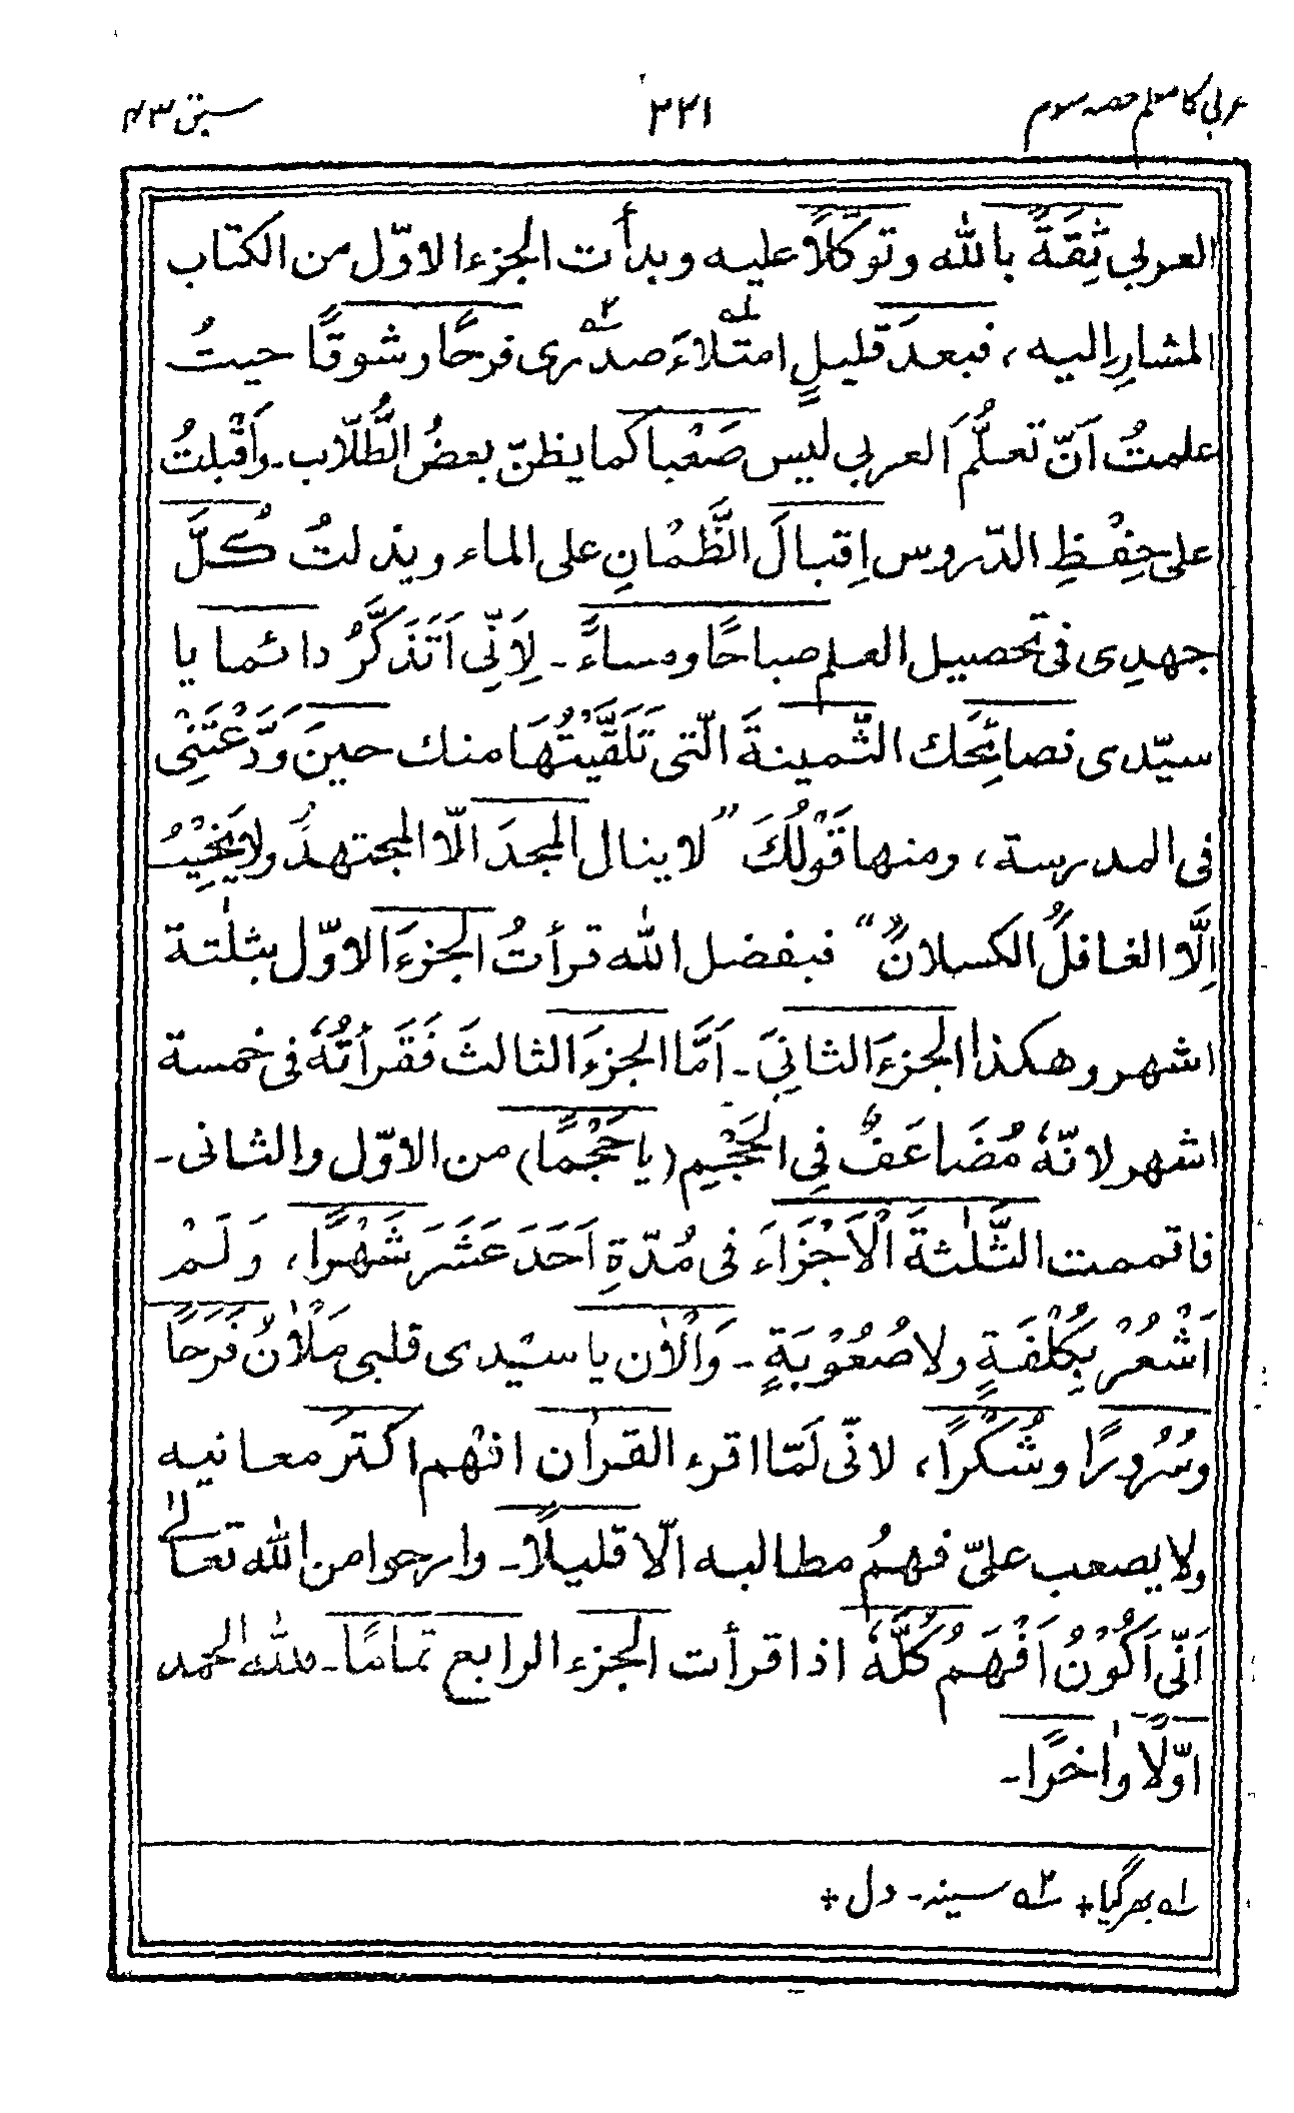 عربی کا معلم حصہ سوم ۲۲۱ سبق ۴۳
العربي ثِقَةً بالله وتوكّلاً عليه وبدأت الجزء الاوّل من الكتاب
المشارِ اليه، فبعدَ قليلٍ امتلاءَ صدری فرحًا وشوقًا حيثُ
علمتُ اَنّ تعلُّمَ العربي ليس صَعْبا كما يظنّ بعضُ الطُّلّاب۔ واَقْبلتُ
على حِفْظِ الدّروس اِقبالَ الظَّمْانِ على الماء وبذلتُ كُلَّ
جهدِی فی تحصيل العلم صباحًا ومساءً۔ لِاَنّی اَتَذَكَّرُ دائما يا
سيّدی نصائِحَك الثّمينةَ الّتی تَلَقَّيْتُهَا منك حينَ وَدَّعْتَنِیْ
فی المدرسة، ومنها قَوْلُكَ "لا ينال المجدَ الّا المجتهدُ ولا يَخِيْبُ
اِلَّا الغافلُ الكسلانُ" فبفضل الله قرأتُ الجزءَ الاوّل بثلٰثة
اشهر وهكذا الجزءَ الثانیَ۔ اَمَّا الجزءَ الثالثَ فَقَرأتُهٗ فی خمسة
اشهر لانّهٗ مُضَاعَفٌ فِی الحَجْمِ (يا حَجْمًا) من الاوّل والثانی۔
فاتممت الثَّلٰثةَ الْاَجْزَاءَ فی مُدّةِ اَحَدَ عَشَرَ شَهْرًا، وَلَمْ
اَشْعُرْ بِكُلْفَةٍ ولا صُعُوْبَةٍ۔ وَالْاٰن يا سيّدی قلبی مَلْاٰنُ فَرَحًا
وسُرورًا وشُكْرًا، لانّی لَمّا اقرء القراٰن افهم اكثر معانيه
ولا يصعب علیّ فهمُ مطالبه الّا قليلًا۔ وارجوا من الله تعالٰی
اَنّی اَكُوْنُ اَفْهَمُ كُلَّهٗ اذا قرأت الجزء الرابع تمامًا۔ فلله الحمد
اوّلًا واٰخرًا۔
؎۱ بھر گیا ؎۲ سینہ۔ دل